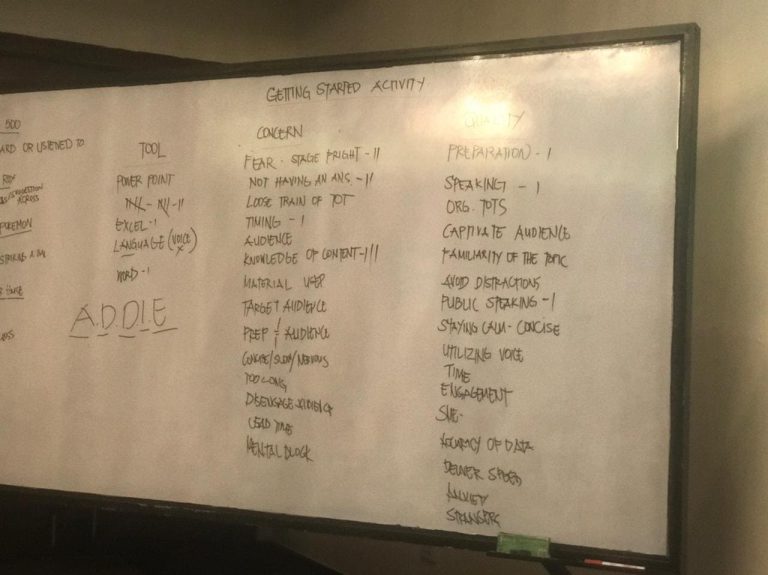 GETTING STARTED ACTIVITY
500
ARD OR LISTENED TO
ROY
ACROSS
POKEMON
HOUSE
TOOL
POWER POINT
EXCEL - I
LANGUAGE (VOICE)
WORD - I
A.D.D.I.E
CONCERN
FEAR - STAGE FRIGHT - II
NOT HAVING AN ANS. - II
LOOSE TRAIN OF TOT
TIMING - I
AUDIENCE
KNOWLEDGE OF CONTENT - III
MATERIAL USED
TARGET AUDIENCE
PREP AUDIENCE
CONCISE/SLOW/NERVOUS
TOO LONG
DISENGAGE AUDIENCE
LEAD TIME
MENTAL BLOCK
QUALITY
PREPARATION - I
SPEAKING - I
ORG. TOTS
CAPTIVATE AUDIENCE
FAMILIARITY OF THE TOPIC
AVOID DISTRACTIONS
PUBLIC SPEAKING - I
STAYING CALM - CONCISE
UTILIZING VOICE
TIME
ENGAGEMENT
SME -
ACCURACY OF DATA
DELIVER SPEED
ANXIETY
STRANGERS